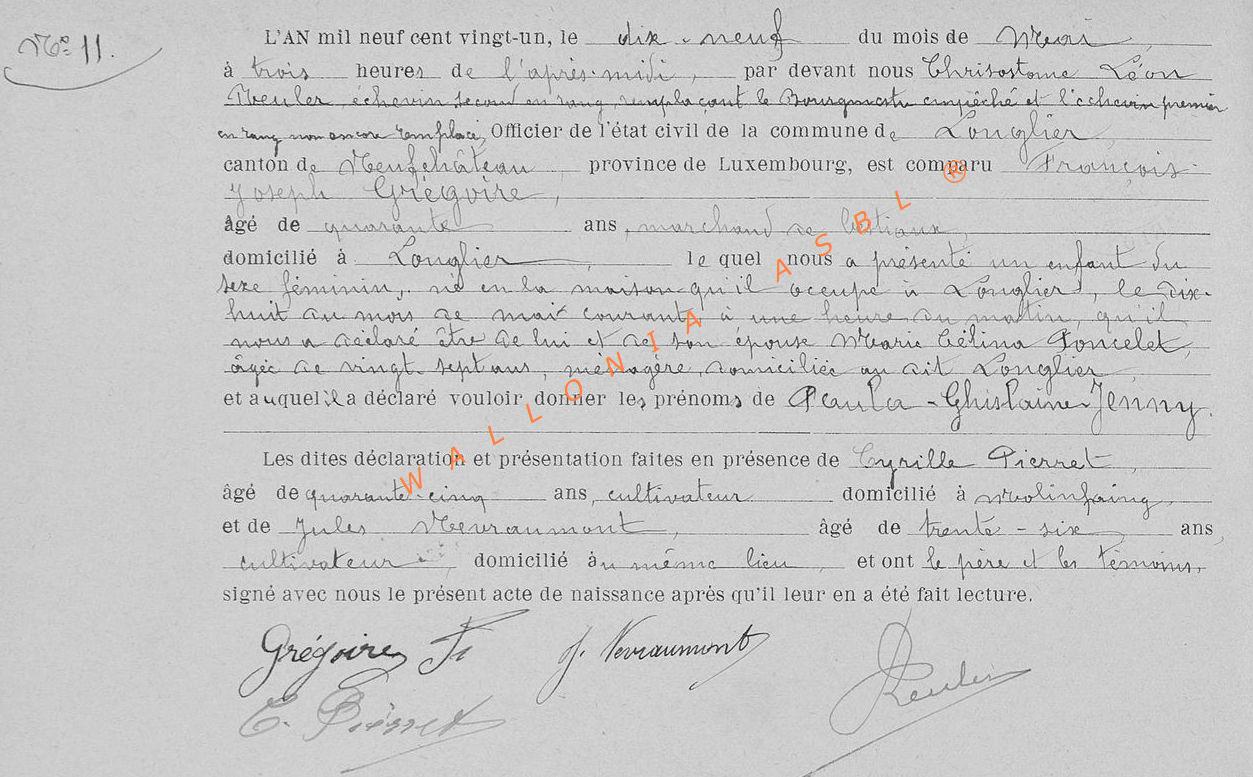 Nº 11.
L'AN mil neuf cent vingt-un, le dix-neuf du mois de Mai,
à trois heures de l'après-midi, par devant nous Chrisostome Léon
échevin second en rang, remplaçant le Bourgmestre empêché et l'échevin premier
en rang non encore remplacé, Officier de l'état civil de la commune de Longlier
canton de Neufchâteau province de Luxembourg, est comparu François-
Joseph Grégoire,
âgé de quarante ans, marchand de bestiaux,
domicilié à Longlier, lequel nous a présenté un enfant du
sexe féminin, né en la maison qu'il occupe à Longlier, le dix-
huit du mois de mai courant, à une heure du matin, qu'il
nous a déclaré être de lui et de son épouse Marie Célina Poncelet,
âgée de vingt-sept ans, ménagère, domiciliée au dit Longlier,
et auquel il a déclaré vouloir donner les prénoms de Paula-Ghislaine-Jenny.
Les dites déclaration et présentation faites en présence de Cyrille Pierret,
âgé de quarante-cinq ans, cultivateur domicilié à Molinfaing,
et de Jules Nevraumont, âgé de trente-six ans,
cultivateur, domicilié au même lieu, et ont le père et les témoins,
signé avec nous le présent acte de naissance après qu'il leur en a été fait lecture.
Grégoire Fs J. Nevraumont
C. Pierret
WALLONIA ASBL ®